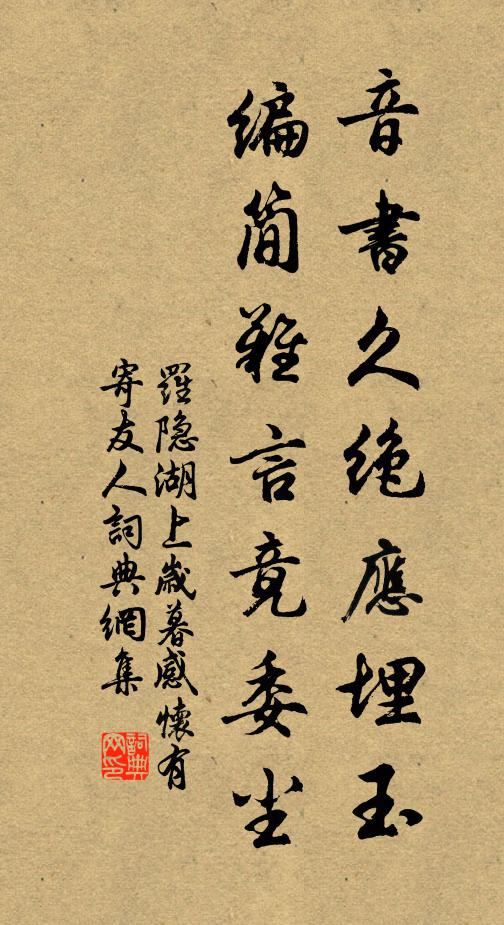 音書久絶應埋玉
編簡難言竟委塵
羅隐湖上歲暮感懷有
寄友人詞典網集
詞典網印